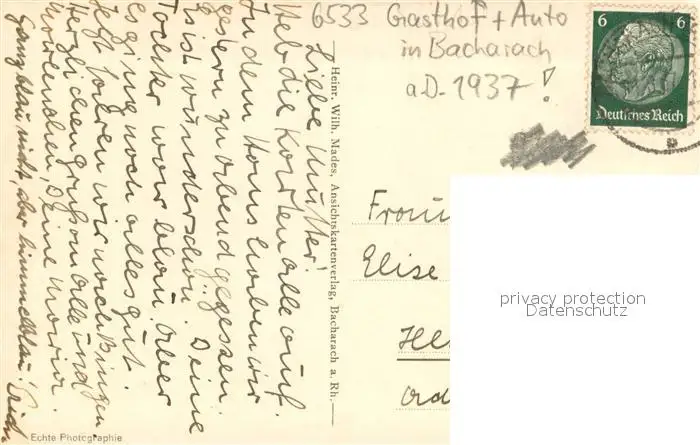 6533 Gasthof + Auto
in Bacharach
a.D. 1937!
6 6
Deutsches Reich
Liebe Mutter!
Heb die Karten alle auf.
In dem Haus haben wir
gestern zu abend gegessen
Es ist wunderschön. Deine
Tochter war blau. Aber
es ging noch alles gut.
Jetzt fahren wir nach Bingen
Herzlichen Gruß an alle und
Deine Maria.
ganz blau nicht, aber himmelblau!
Heinr. Wilh. Mades, Ansichtskartenverlag, Bacharach a. Rh.
Elise
privacy protection
Datenschutz
Echte Photographie